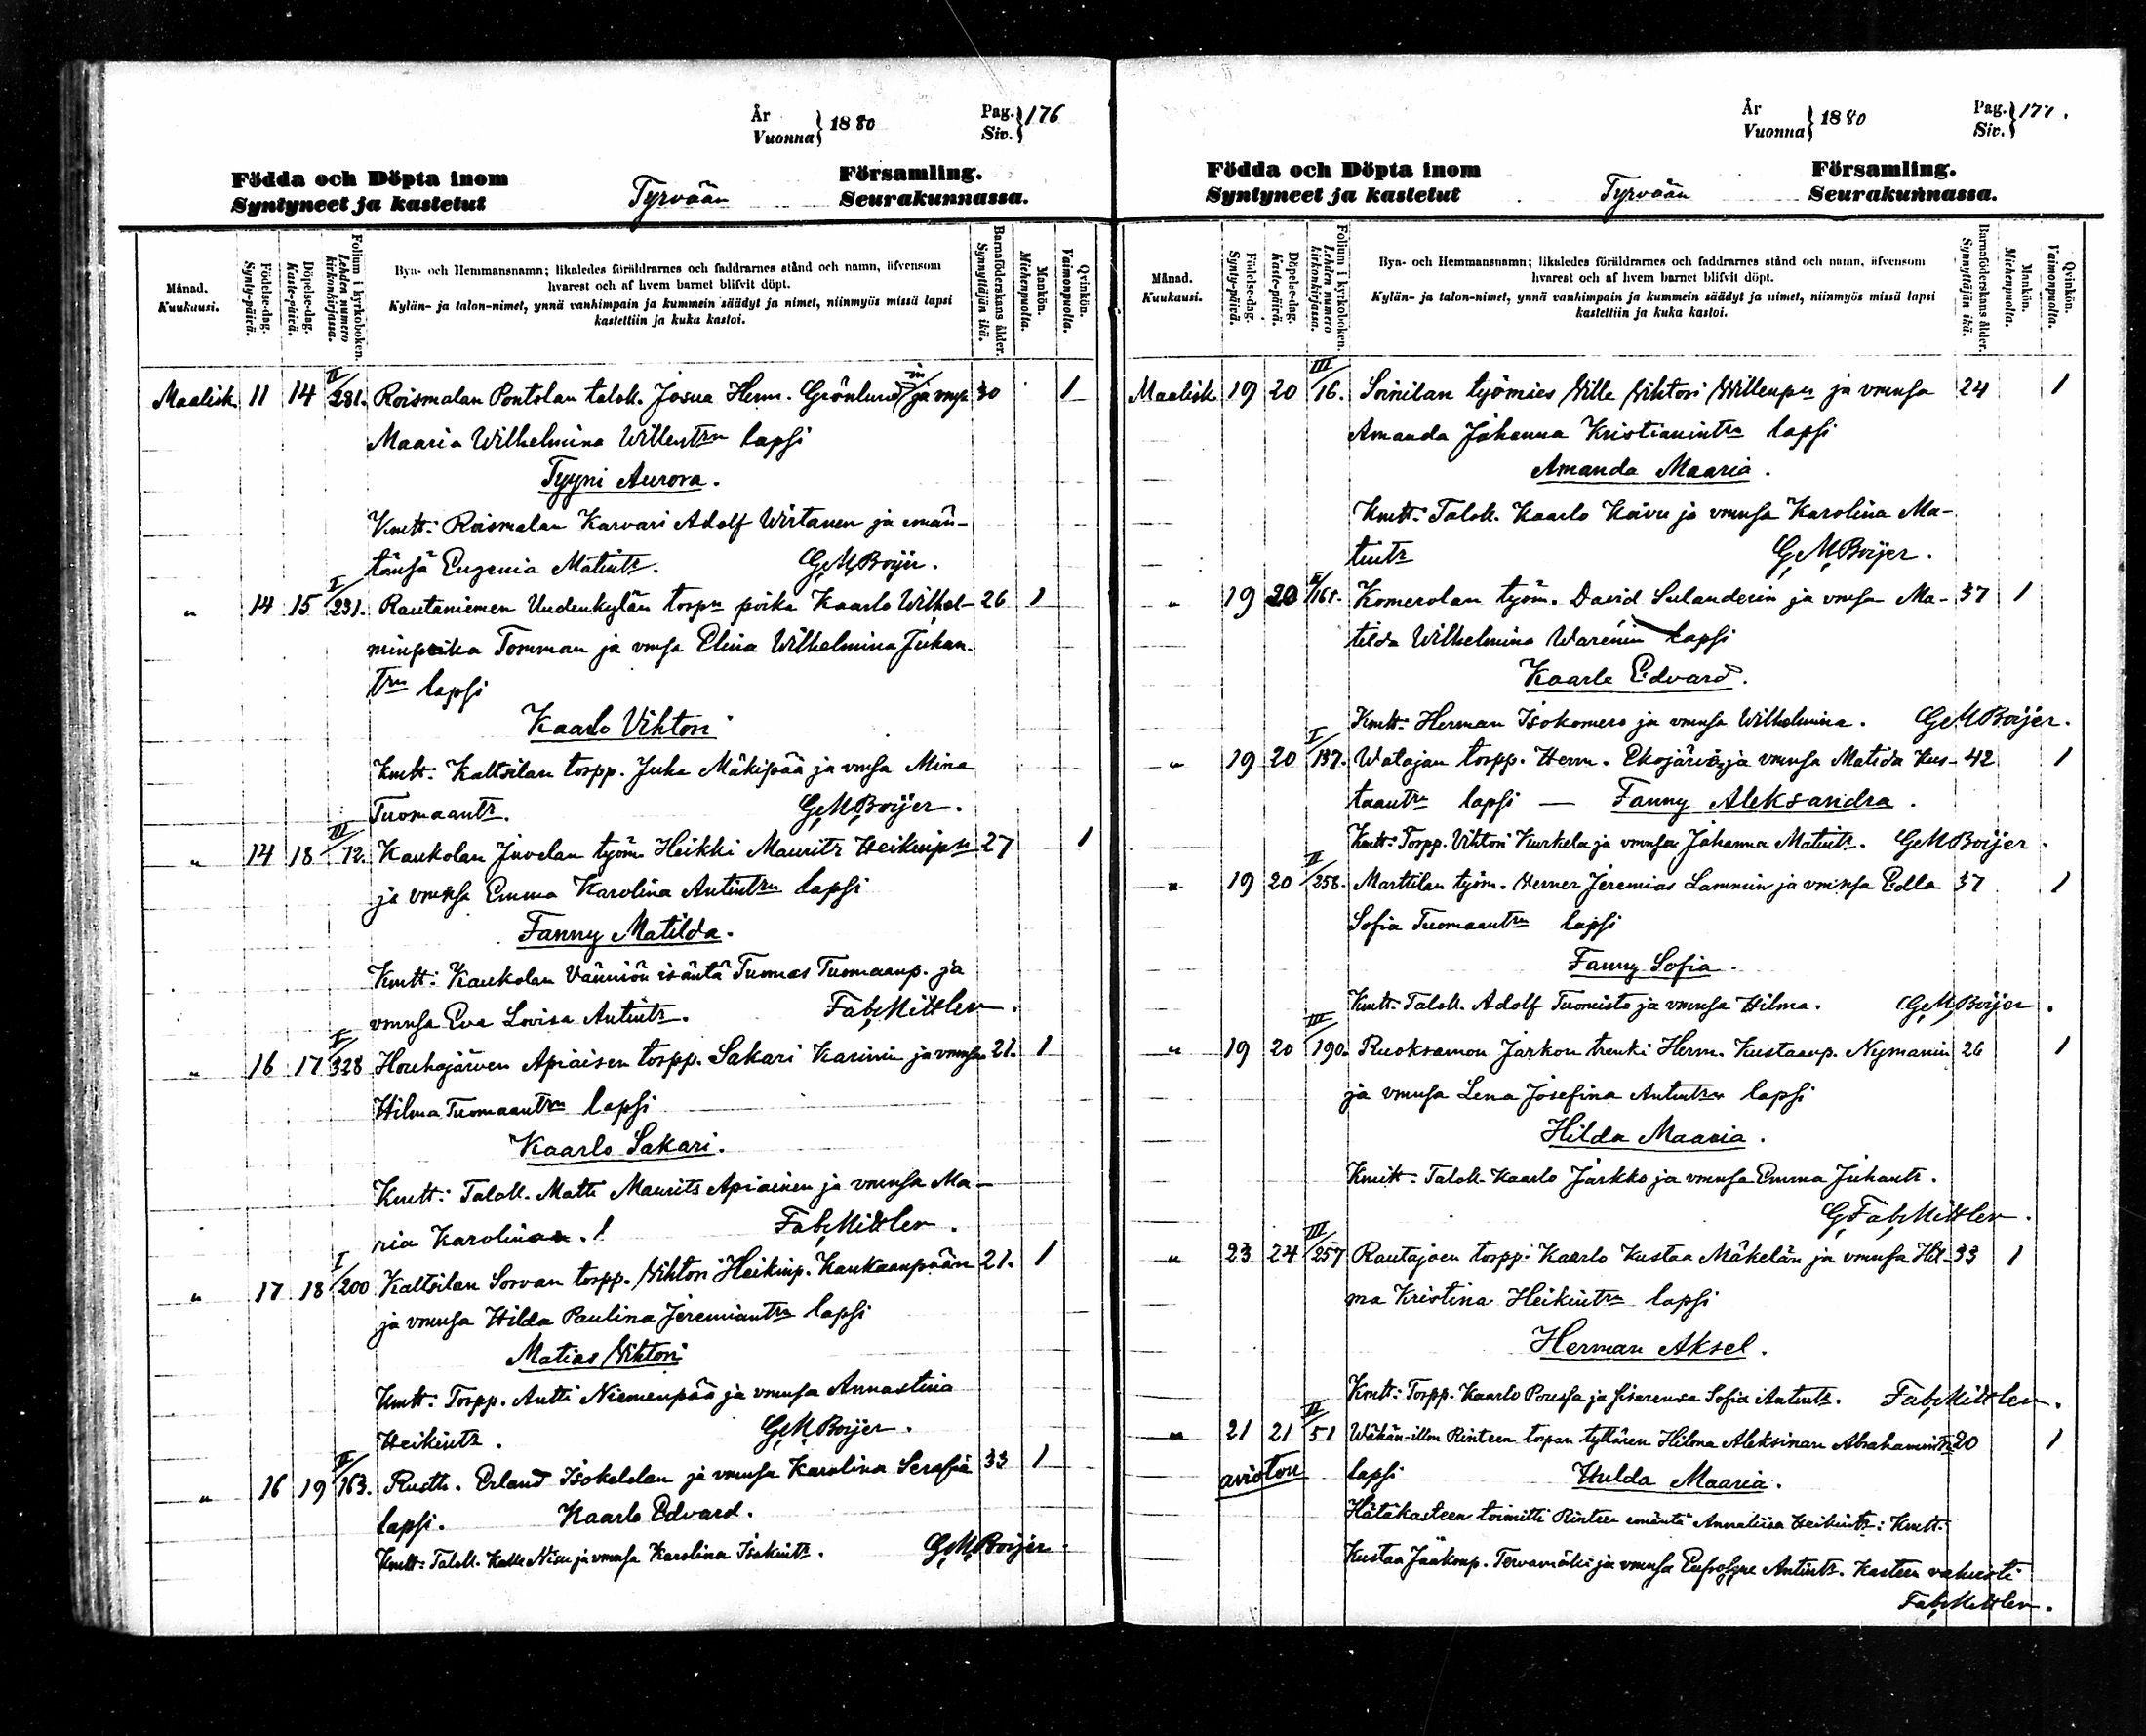 År
Vuonna } 1880
Pag.
Siv. } 176
Födda och Döpta inom
Syntyneet ja kastetut
Tyrvään
Församling.
Seurakunnassa.
Månad.
Kuukausi.
Födelse-dag.
Synty-päivä.
Döpelse-dag.
Kaste-päivä.
Folium i kyrkoboken.
Lehden numero kirkonkirjassa.
Bya- och Hemmansnamn; likaledes föräldrarnes och faddrarnes stånd och namn, äfvensom
hvarest och af hvem barnet blifvit döpt.
Kylän- ja talon-nimet, ynnä vanhimpain ja kummein säädyt ja nimet, niinmyös missä lapsi
kastettiin ja kuka kastoi.
Barnaföderskans ålder.
Synnyttäjän ikä.
Mankön.
Miehenpuolta.
Qvinkön.
Vaimonpuolta.
Maalisk. 11 14 II/281. Roismalan Pontolan talok. Josua Herm. Grönlundin ja vmsa 30 1
Maaria Wilhelmina Willentrn lapsi
Tyyni Aurora.
Kmtt: Roismalan Karvari Adolf Wirtanen ja emän-
tänsä Eugenia Matintr. G,M,Boijer.
" 14 15 I/231. Rautaniemen Uudenkylän torpn poika Kaarlo Wilhel- 26 1
minpoika Tomman ja vmsa Elina Wilhelmina Juhan-
trn lapsi
Kaarlo Vihtori
Kmtt: Kaltsilan torpp. Juha Mäkipää ja vmsa Mina
Tuomaantr. G,M,Boijer.
" 14 18 III/72. Kaukolan Juvelan työm. Heikki Mauritz Heikinpn 27 1
ja vmnsa Emma Karolina Antintrn lapsi
Fanny Matilda.
Kmtt: Kaukolan Vänniön isäntä Tuomas Tuomaanp. ja
vmnsa Eva Lovisa Antintr. Fab,Mittler.
" 16 17 I/328 Houhajärven Apiaisen torpp. Sakari Karinin ja vmnsa 21. 1
Hilma Tuomaantrn lapsi
Kaarlo Sakari.
Kmtt: Talok. Matti Maurits Apiainen ja vmnsa Ma-
ria Karolina. Fab,Mittler.
" 17 18 I/200 Kaltsilan Sorvan torpp. Vihtori Heikinp. Kaukaanpään 21. 1
ja vmnsa Hilda Paulina Jeremiantrn lapsi
Matias Vihtori
Kmtt: Torpp. Antti Niemenpää ja vmnsa Annastina
Heikintr. G,M,Boijer.
" 16 19 II/163. Rusth. Erland Isokelelan ja vmnsa Karolina Serafia 33 1
lapsi. Kaarlo Edvard.
Kmtt: Talok. Kalle Nisu ja vmnsa Karolina Isakintr. G,M,Boijer.
År
Vuonna } 1880
Pag.
Siv. } 177.
Födda och Döpta inom
Syntyneet ja kastetut
Tyrvään
Församling.
Seurakunnassa.
Månad.
Kuukausi.
Födelse-dag.
Synty-päivä.
Döpelse-dag.
Kaste-päivä.
Folium i kyrkoboken.
Lehden numero kirkonkirjassa.
Bya- och Hemmansnamn; likaledes föräldrarnes och faddrarnes stånd och namn, äfvensom
hvarest och af hvem barnet blifvit döpt.
Kylän- ja talon-nimet, ynnä vanhimpain ja kummein säädyt ja nimet, niinmyös missä lapsi
kastettiin ja kuka kastoi.
Barnaföderskans ålder.
Synnyttäjän ikä.
Mankön.
Miehenpuolta.
Qvinkön.
Vaimonpuolta.
Maalisk. 19 20 III/16. Soinilan työmies Wille Vihtori Willenpn ja vmnsa 24 1
Amanda Johanna Kristianintrn lapsi
Amanda Maaria.
Kmtt: Talok. Kaarlo Koivu ja vmnsa Karolina Ma-
tintr G,M,Boijer.
" 19 20 II/165. Komerolan työm. David Sulanderin ja vmsa Ma- 37 1
tilda Wilhelmina Warenin lapsi
Kaarle Edvard.
Kmtt: Herman Isokomero ja vmnsa Wilhelmina. G,M,Boijer.
" 19 20 I/137. Watajan torpp. Herm. Ekojärven ja vmnsa Matilda Kus- 42 1
taantrn lapsi — Fanny Aleksandra.
Kmtt: Torpp. Vihtori Kurkela ja vmnsa Johanna Matintr. G,M,Boijer.
" 19 20 II/258. Marttilan työm. Verner Jeremias Lammin ja vmnsa Edla 37 1
Sofia Tuomaantrn lapsi
Fanny Sofia.
Kmtt: Talok. Adolf Tuomisto ja vmnsa Hilma. G,M,Boijer.
" 19 20 III/190. Ruoksamon Jarkon trenki Herm. Kustaanp. Nymanin 26 1
ja vmnsa Lena Josefina Antintrn lapsi
Hilda Maaria.
Kmtt: Talok. Kaarlo Jarkko ja vmnsa Emma Juhantr.
G,Fab,Mittler.
" 23 24 III/257 Rautajoen torpp. Kaarlo Kustaa Mäkelän ja vmnsa Hil- 33 1
ma Kristina Heikintrn lapsi
Herman Aksel.
Kmtt: Torpp. Kaarlo Poussa ja sisarensa Sofia Antintr. Fab,Mittler.
" 21 21 II/51 Wähän-illon Rinteen torpan tyttären Hilma Aleksinan Abrahamintr 20 1
avioton lapsi Hulda Maaria.
Hätäkasteen toimitti Rinteen emäntä Annaliisa Heikintr: Kmtt:
Kustaa Jaakonp. Tervamäki ja vmnsa Eufrosyne Antintr. Kasteen vahvisti
Fab,Mittler.